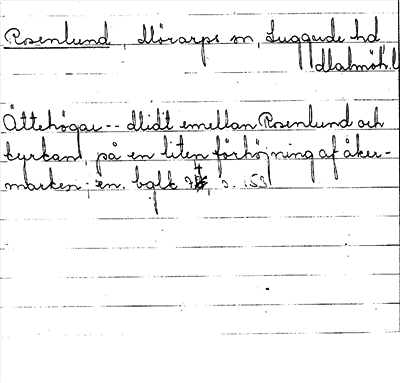 Rosenlund, Mörarps sn, Luggude hd
Malmöh. l
Ättehögar -- Midt emellan Rosenlund och
kyrkan, på en liten förhöjning af åker-
marken; en. bglk 74, s. 153